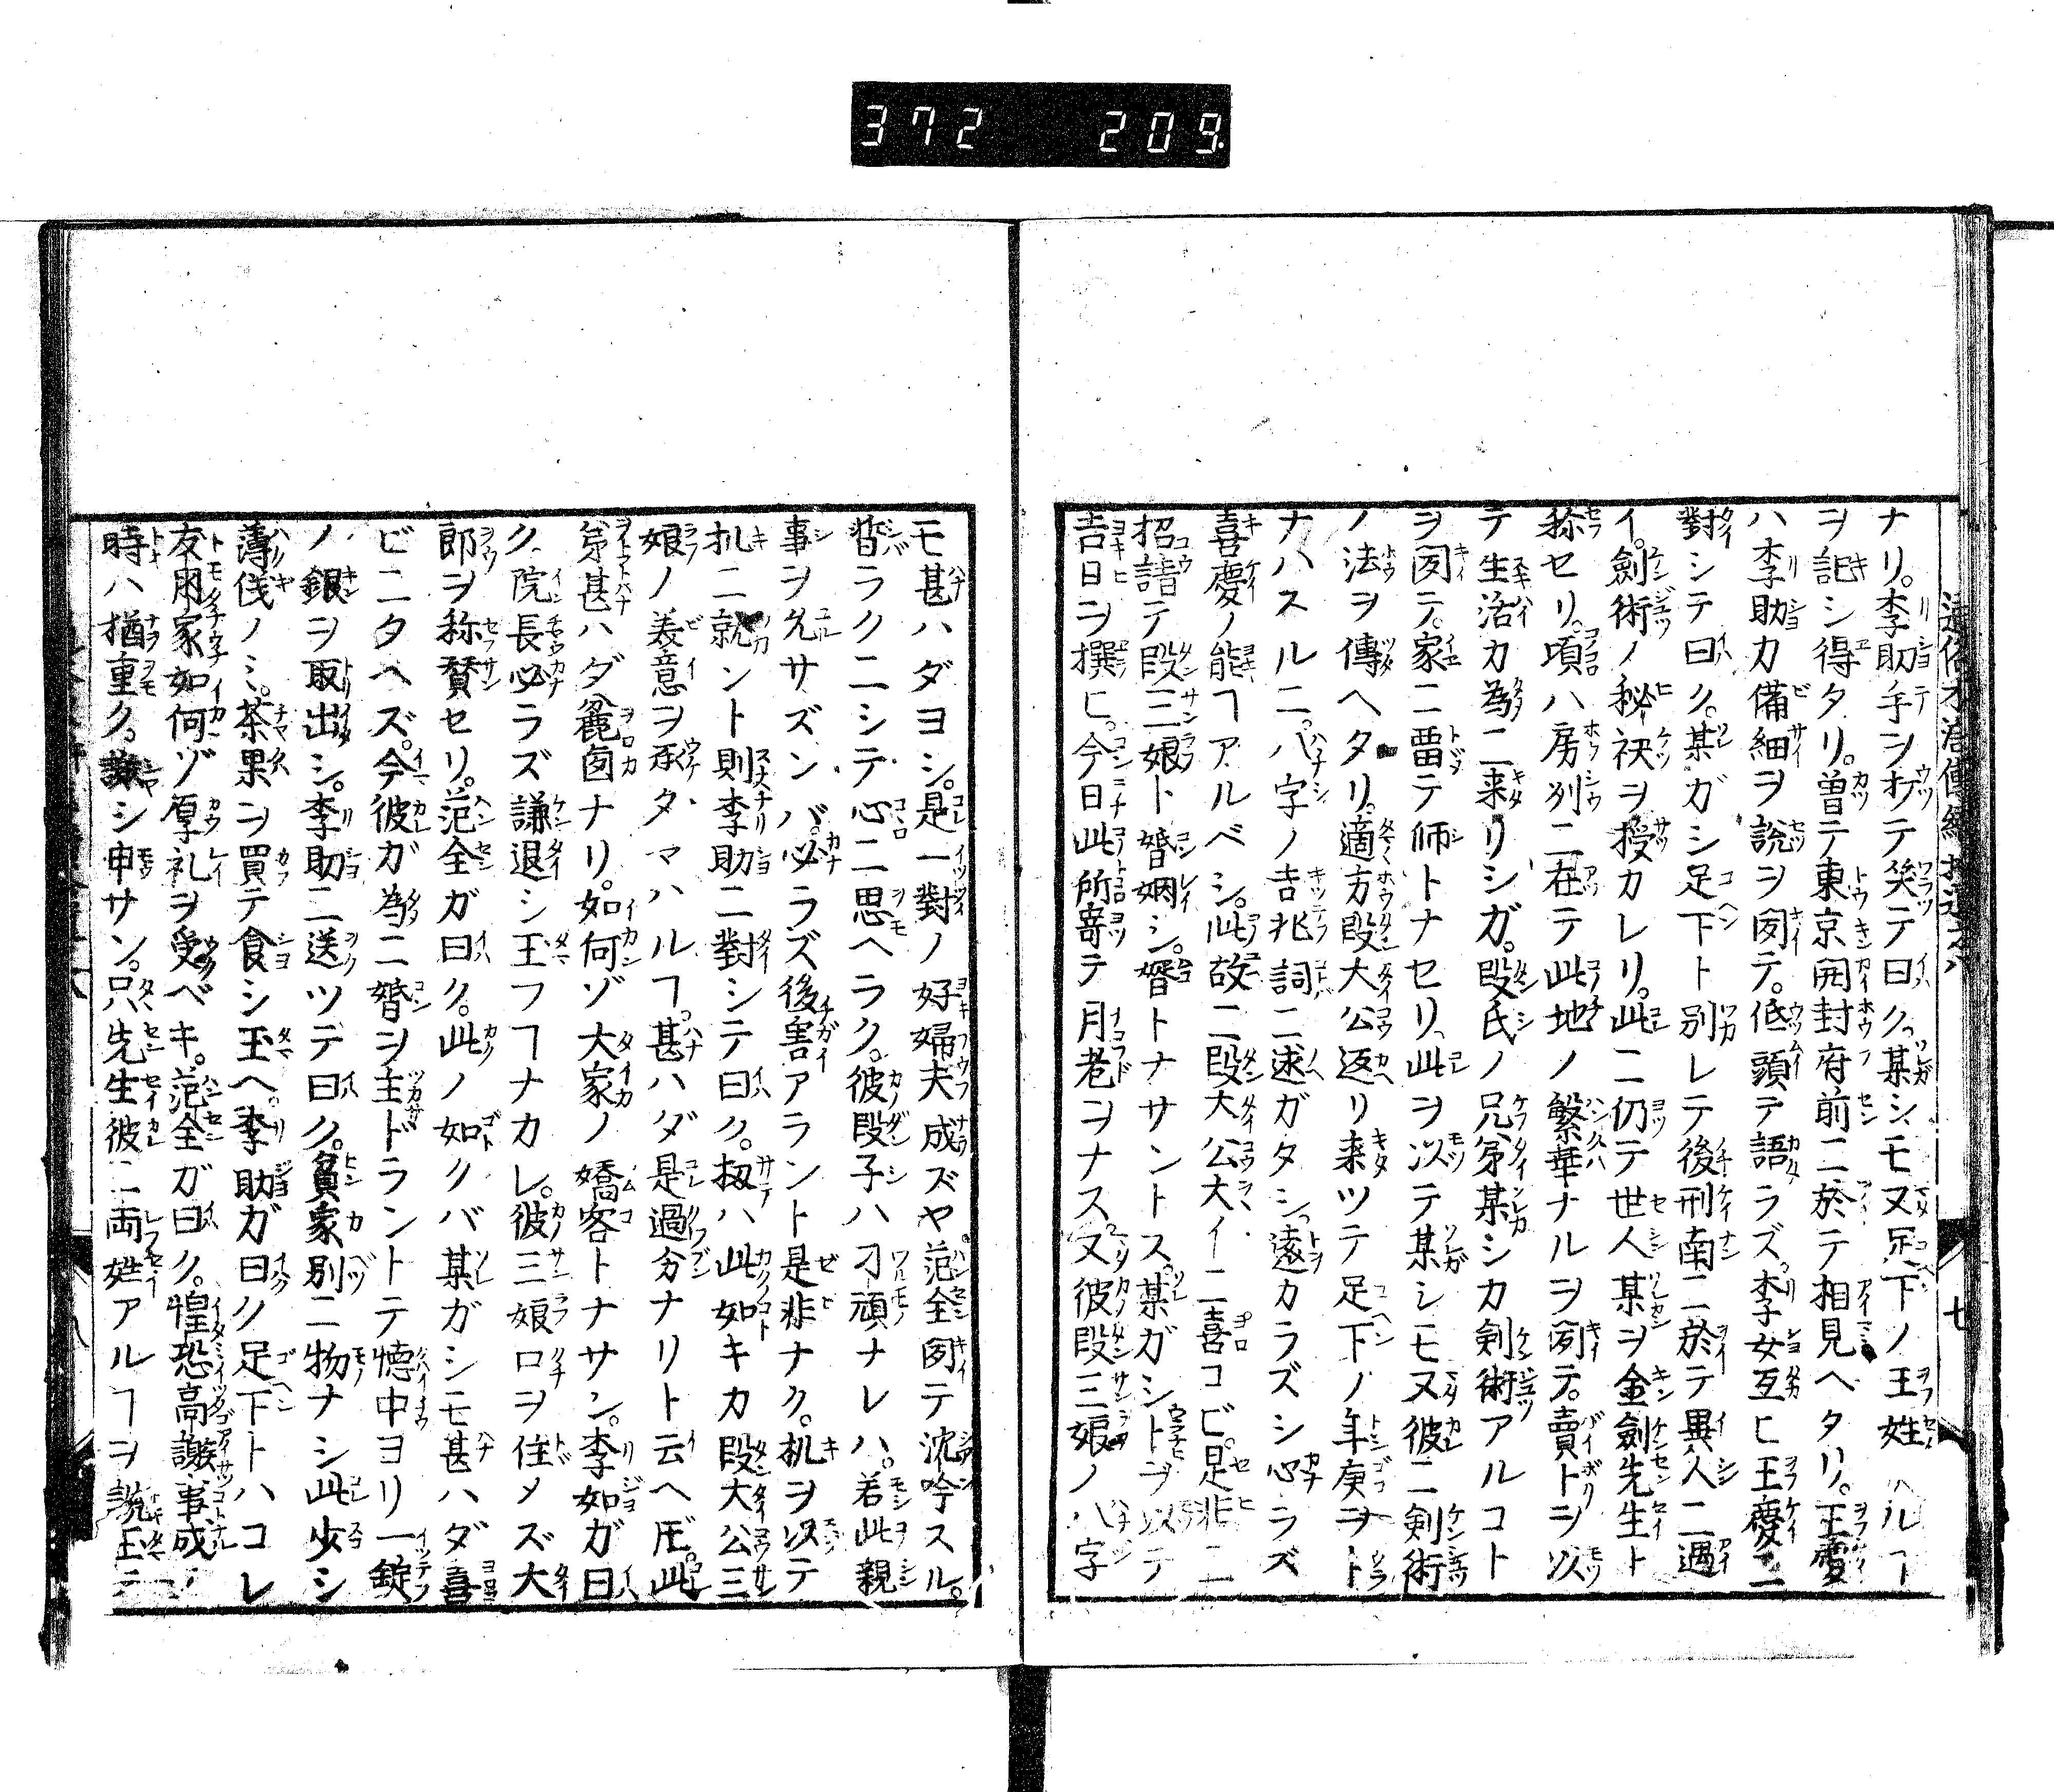 372 209
ナリ。李助手ヲ拍テ笑テ曰ク。某シモ又足下ノ王姓ハルヿ
ヲ記シ得タリ。曽テ東京開封府前ニ於テ相見ヘタリ。王慶
ハ李助カ備細ヲ説ヲ聞テ。低頭テ語ラズ。李助互ヒ王慶ニ
對シテ曰ク。某ガシ足下ト別レテ後刑南ニ於テ異人ニ遇
イ。劍術ノ秘訣ヲ授カレリ。此ニ仍テ世人某ヲ金劍先生ト
称セリ。頃ハ房州ニ在テ此地ノ繁華ナルヲ聞テ。賣トヲ以
テ生活カ為ニ来リシガ。段氏ノ兄弟某シカ剣術アルコト
ヲ聞テ。家ニ畱テ師トナセリ。此ヲ以テ某シモ又彼ニ剣術
ノ法ヲ傳ヘタリ。適方段大公返リ来ツテ足下ノ年庚ヲト
ナハスルニ。八字ノ吉兆詞ニ逑ガタシ。遠カラズシ心ラズ
喜慶ノ能ヿアルベシ。此故ニ段大公大イニ喜コビ。是非ニ
招請テ段三娘ト婚姻シ。婿トナサントス。某ガシトヲ以テ
吉日ヲ撰ヒ。今日此所寄テ月老ヲナス。又彼段三娘ノ八字
モ甚ハダヨシ。是一對ノ好婦夫成ズヤ。范全聞テ沈吟スル。
暫ラクニシテ心ニ思ヘラク。彼段子ハ刁頑ナレハ。若此親
事ヲ允サズンバ。必ラズ後害アラント是非ナク。机ヲ以テ
扎ニ就ント則李助ニ對シテ曰ク。扨ハ此如キカ段大公三
娘ノ美意ヲ承タマハルヿ。甚ハダ是過分ナリト云ヘ𪜈。此
弟甚ハダ麄卤ナリ。如何ゾ大家ノ嬌客トナサン。李如ガ曰
ク。院長必ラズ謙退シ玉フヿナカレ。彼三娘口ヲ住メズ大
郎ヲ称賛セリ。范全ガ曰ク。此ノ如クバ某ガシモ甚ハダ喜
ビニタヘズ。今彼ガ為ニ婚ヲ主ドラントテ懐中ヨリ一錠
ノ銀ヲ取出シ。李助ニ送ツテ曰ク。貧家別ニ物ナシ此少シ
薄儀ノミ。茶果ヲ買テ食シ玉ヘ。李助ガ曰ク足下トハコレ
友朋家如何ゾ厚礼ヲ受ベキ。范全ガ曰ク。惶恐高謝事成
時ハ猶重ク。謝シ申サン。只先生彼ニ両姓アルヿヲ説玉テ